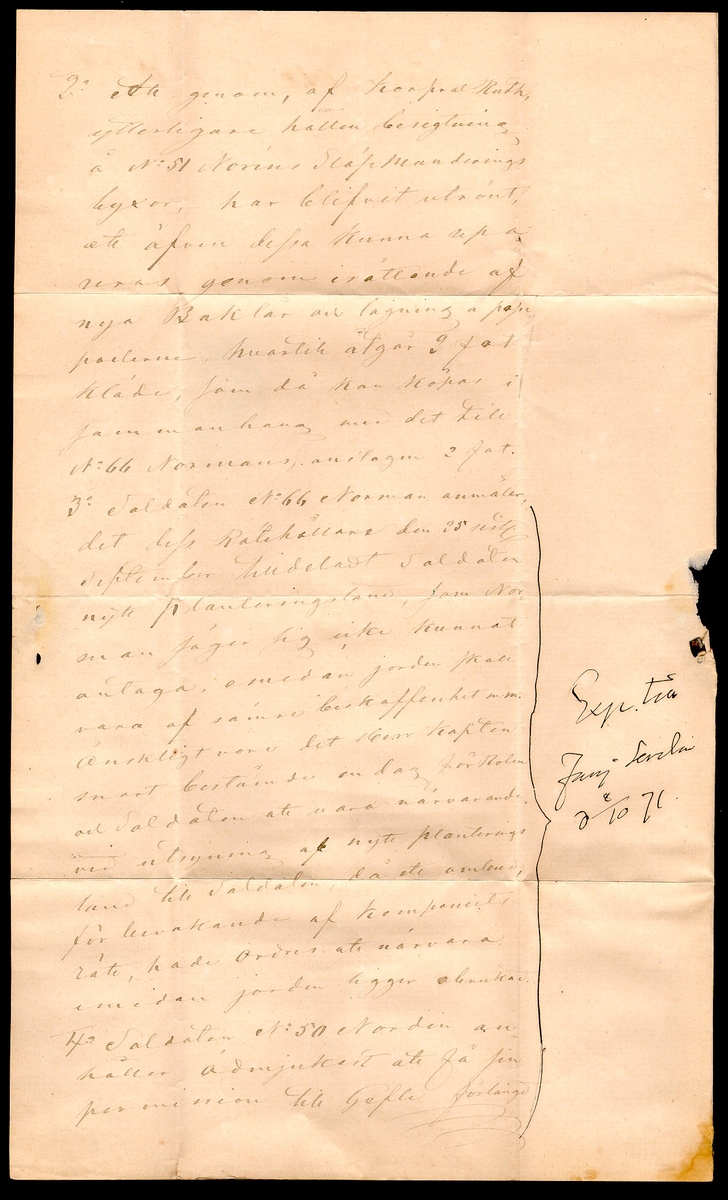 2o Att genom, af Korpral Ruth,
ytterligare hållen besigtning
å No 51 Norins Släp Munderings
byxor, har blifvit utrönt,
att äfven dessa kunna repa-
reras genom isättande af
nya Baklår och lagning å
hvartill åtgår 3 fot
kläde, som då kan köpas i
sammanhang med det till
No 66 Normans, anslagne 2 fot.
3o Soldaten No 66 Norman anmäler,
det dess Rotehållare den 25 sistl
September tilldeladt Soldaten
nytt planteringsland, som Nor-
man säger sig icke kunnat
antaga, emedan jorden skall
vara af sämre beskaffenhet m.m.
Önskligt vore det Herr Kapten
snart bestämde en dag för Roten
och Soldaten att vara närvarande
vid utsyning af nytt planterings
land till Soldaten, då ett ombud,
för bevakande af Kompaniets
rätt, hade Ordres att närvara
emedan jorden ligger obrukad.
4o Soldaten No 50 Nordin an-
håller Ödmjukast att få sin
permission till Gefle förlängd
Exp. till
Fanj
d 8/10 71.